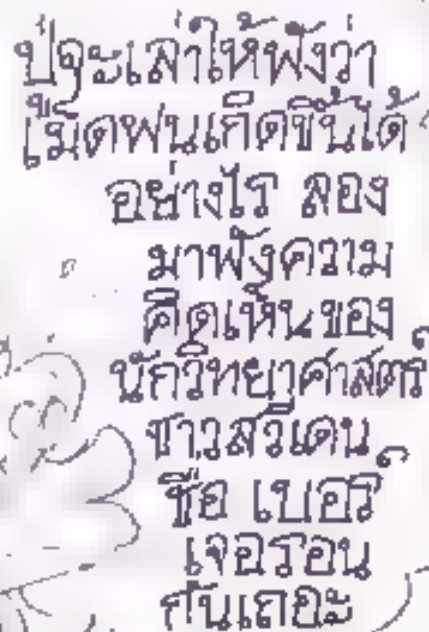 ปู่จะเล่าให้ฟังว่า
เม็ดฝนเกิดขึ้นได้
อย่างไร ลอง
มาฟังความ
คิดเห็นของ
นักวิทยาศาสตร์
ชาวสวีเดน
ชื่อ เบอร์
เจอรอน
กันเถอะ